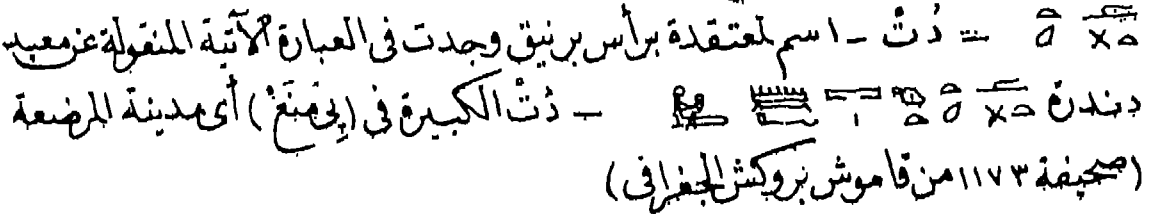 = دُتْ - اسم لمعتقدة برأس برنيق وجدت فى العبارة الآتية المنقولة عن معبد
دندرة - دُتْ الكبيرة فى (پِى مَنَغْ) أى مدينة المرضعة
(صحيفة ١١٧٣ من قاموش بروكش الجغرافى)